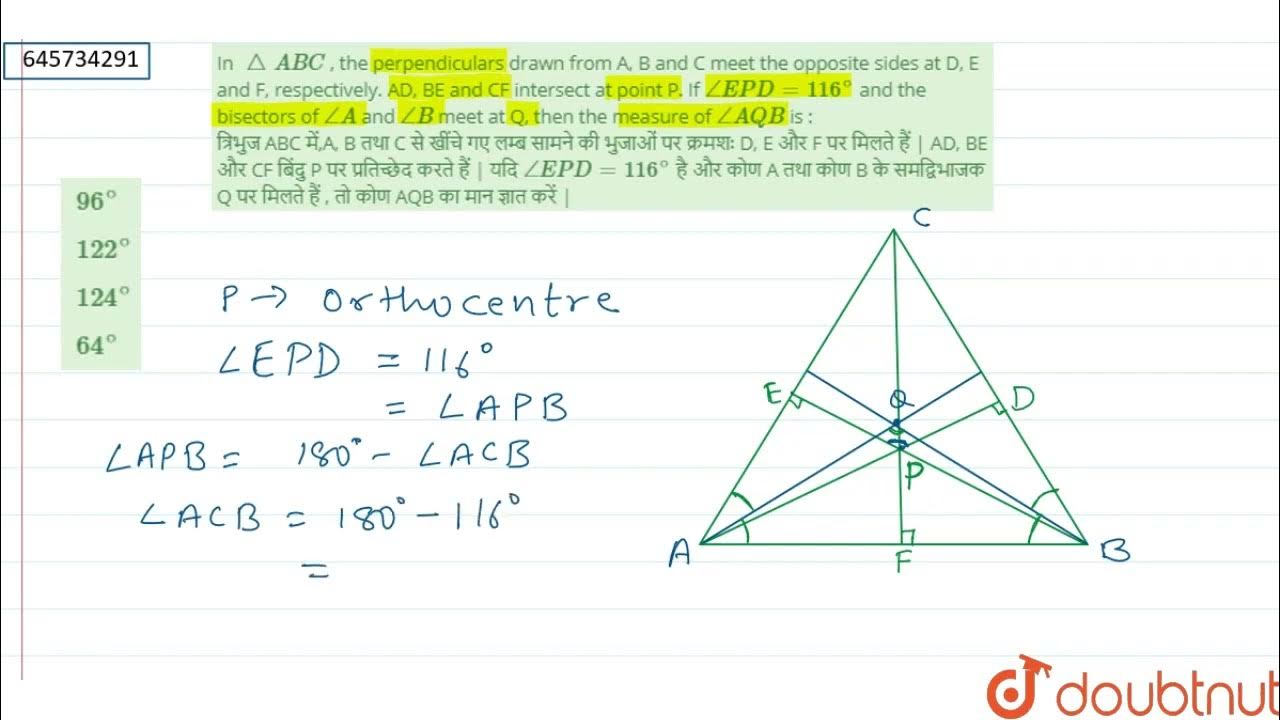 645734291
In △ABC, the perpendiculars drawn from A, B and C meet the opposite sides at D, E
and F, respectively. AD, BE and CF intersect at point P. If ∠EPD = 116° and the
bisectors of ∠A and ∠B meet at Q, then the measure of ∠AQB is :
त्रिभुज ABC में,A, B तथा C से खींचे गए लम्ब सामने की भुजाओं पर क्रमशः D, E और F पर मिलते हैं | AD, BE
और CF बिंदु P पर प्रतिच्छेद करते हैं | यदि ∠EPD = 116° है और कोण A तथा कोण B के समद्विभाजक
Q पर मिलते हैं , तो कोण AQB का मान ज्ञात करें |
96°
122°
124°
64°
P → Orthocentre
∠EPD = 116°
= ∠APB
∠APB = 180° - ∠ACB
∠ACB = 180° - 116°
=
C
E
Q
D
P
A
F
B
doubtnut